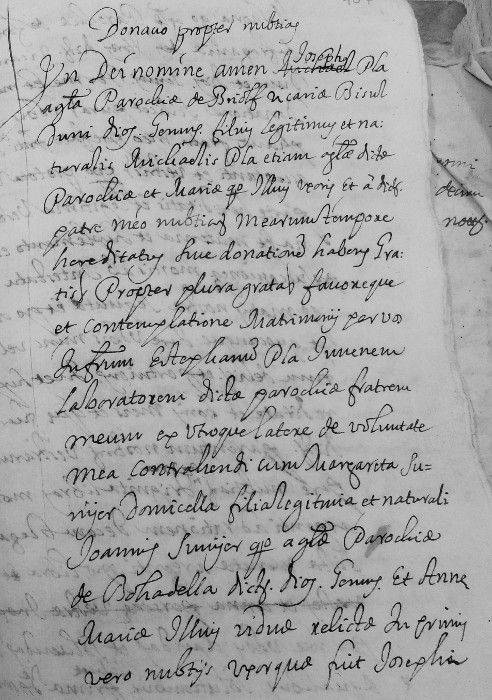 Donatio propter nubtias
Yn Dei nomine amen Josephs Pla
agla Parochiæ de Briolf vicariæ Bisul
duni dios. Gerun. filius legitimus et na:
turalis Michaelis Pla etiam aglæ dictæ
Parochiæ et Mariæ qº Illius uxoris Et a dicto
patre meo nubtiarū mearum tempore
hereditatus sive donationē habens Gra:
tis Propter plura grata favoresque
et contemplatione Matrimonij per vos
Infrum Estephanū Pla Iuvenem
laboratorem dictæ parochiæ fratrem
meum ex Vtroque latere de voluntate
mea contrahendi cum Margareta Su=
nijer Domicella filia legitima et naturali
Joannis Sunijer qº aglæ Parochiæ
de Bohadella dict. dios. Gerun. Et Anne
Mariæ Illius viduæ relictæ In primis
vero nubtijs vxorquæ fuit Josephi